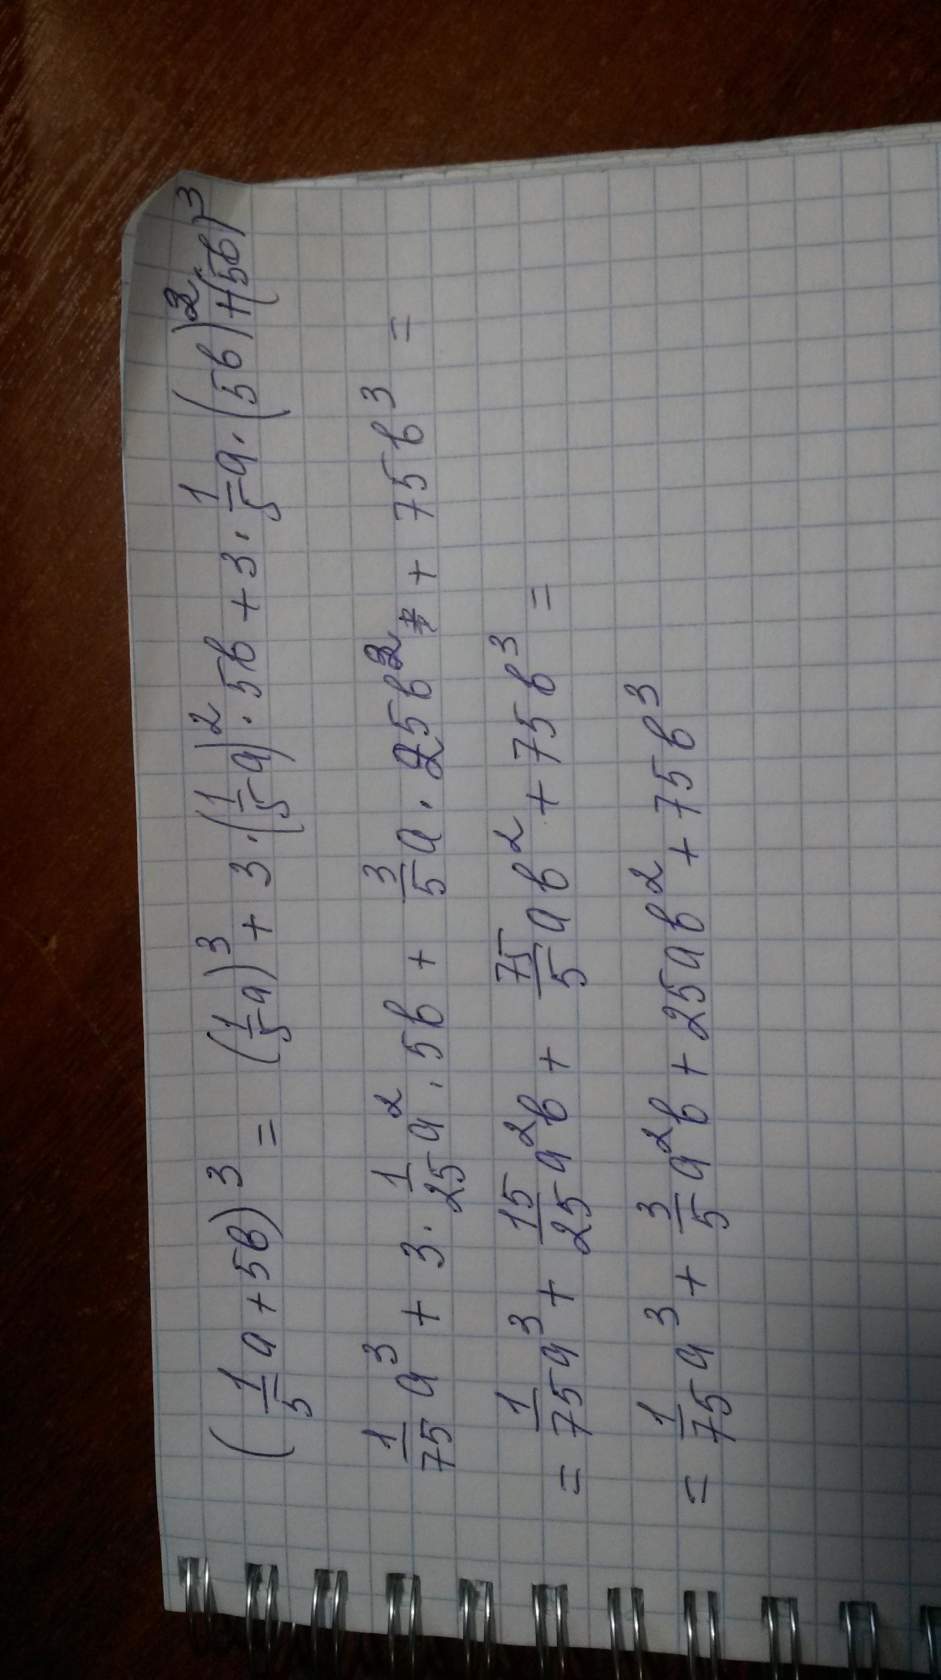 (1/5 a + 5в)³ = (1/5 a)³ + 3 · (1/5 a)² · 5в + 3 · 1/5 a · (5в)² + (5в)³
1/75 a³ + 3 · 1/25 a² · 5в + 3/5 a · 25в² + 75в³ =
= 1/75 a³ + 15/25 a²в + 75/5 aв² + 75в³ =
= 1/75 a³ + 3/5 a²в + 25aв² + 75в³